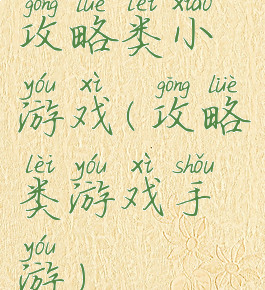 gōng lüè lèi xiǎo
攻略类小
yóu xì gōng lüè
游戏(攻略
lèi yóu xì shǒu
类游戏手
yóu
游)